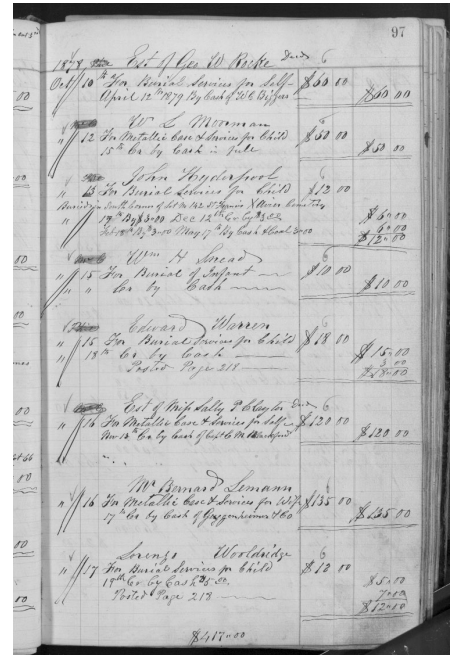 97
1878 Est of Geo W Deced 6
Oct 10th For Burial Services for Self $60 00
April 12th 1879 By Cash of W C Biggers $60 00
W L Moorman
" 12 For Metallic Case & Services for Child $50 00
15th Cr by Cash in full $50 00
John
" 13 For Burial Services for Child $12 00
Buried in South of Lot No 142
19th By $3=00 Dec 12th Cr By $3.00 $6=00
By $3=00 May 17th By Cash & Coal 3=00 6=00
$12=00
Wm H Snead
" 15 For Burial of Infant $10 00
" " Cr by Cash $10 00
Edward Warren 6
" 15 For Burial Services for Child $18 00
" 18th Cr by Cash $15=00
Posted Page 218 3 00
$18=00
Est of Miss Sally P Claytor Deced 6
" 16 For Metallic Case & Services for Self $120 00
Nov 13th Cr by Cash of Capt C M Blackford $120 00
Mr Bernard Lemann
" 16 For Metallic Case & Services for Wife $135 00
17th Cr by Cash of Guggenheimer & Co $135 00
Lorenzo Wooldridge 6
" 17 For Burial Services for Child $12 00
19th Cr by Cash $5.00 $5=00
Posted Page 218 7=00
$12=00
$417=00